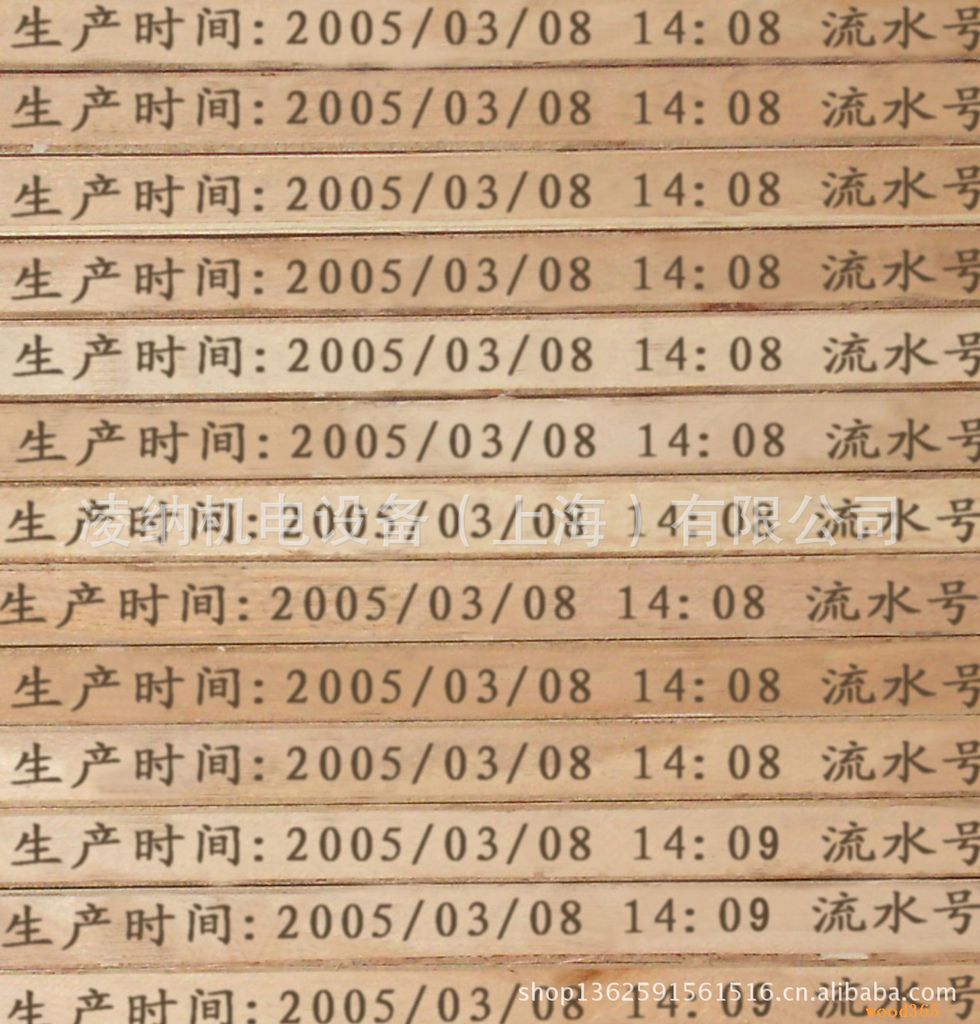 生产时间:2005/03/08 14:08 流水号
生产时间:2005/03/08 14:08 流水号
生产时间:2005/03/08 14:08 流水号
生产时间:2005/03/08 14:08 流水号
生产时间:2005/03/08 14:08 流水号
生产时间:2005/03/08 14:08 流水号
生产时间:2005/03/08 14:08 流水号
凌纳机电设备（上海）有限公司
生产时间:2005/03/08 14:08 流水号
生产时间:2005/03/08 14:08 流水号
生产时间:2005/03/08 14:08 流水号
生产时间:2005/03/08 14:09 流水号
生产时间:2005/03/08 14:09 流水号
生产时间:2005/03/08 14:09 流水号
shop1362591561516.cn.alibaba.com
wood365